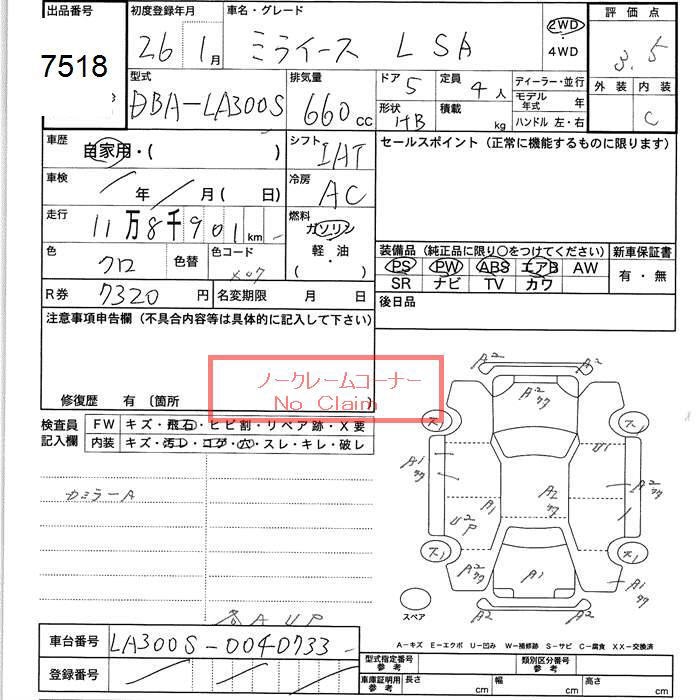 出品番号
7518
初度登録年月
26 1月
車名・グレード
ミライース L SA
2WD
・
4WD
評価点
3.5
外装 内装
C
型式
DBA-LA300S
排気量
660 cc
ドア 5
形状 HB
定員 4人
積載 kg
ディーラー・並行
モデル年式 年
ハンドル 左・右
車歴
自家用・( )
シフト
IAT
セールスポイント (正常に機能するものに限ります)
車検
年 月( 日)
冷房
AC
走行
11万8千901km
燃料
ガソリン
軽・油
( ・ )
色
クロ
色替
色コード
X07
装備品 (純正品に限り○をつけてください)
PS PW ABS エアB AW
SR ナビ TV カワ
新車保証書
有・無
R券 7320 円
名変期限 月 日
後日品
注意事項申告欄 (不具合内容等は具体的に記入して下さい)
ノークレームコーナー
No Claim
修復歴 有 〔箇所
検査員
記入欄
FW キズ・飛石・ヒビ割・リペア跡・X要
内装 キズ・汚レ・コゲ・穴・スレ・キレ・破レ
カミラーA
各AUP
A2 A2
A2
キズ
A1
U1
A2
A1
A2
U2
P
A2
A1
A1
A2 A2
スペア
車台番号 LA300S-0040733
登録番号
A-キズ E-エクボ U-凹み W-補修跡 S-サビ C-腐食 XX-交換済
型式指定番号
参考
類別区分番号
参考
車庫証明用
参考
長さ cm
幅 cm
高さ cm